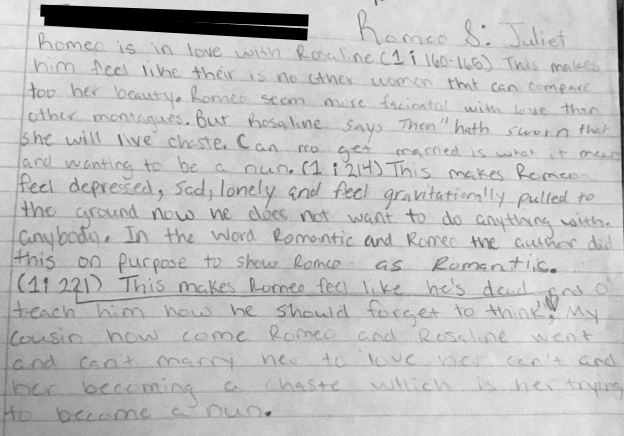 Romeo & Juliet
Romeo is in love with Rosaline (1 i 160-165) This makes
him feel like their is no other women that can compare
too her beauty. Romeo seem more facinatal with love than
other montagues. But Rosaline says Then "hath sworn that
she will live chaste. Can no get married is what it mean
and wanting to be a nun. (1 i 214) This makes Romeo
feel depressed, sad, lonely and feel gravitationally pulled to
the ground now he does not want to do anything with
anybody. In the word Romantic and Romeo the author did
this on purpose to show Romeo as Romantic.
(1 i 221) This makes Romeo feel like he's dead and O
teach him how he should forget to think! My
cousin how come Romeo and Rosaline went
and can't marry her to love her can't and
her becoming a chaste which is her trying
to become a nun.